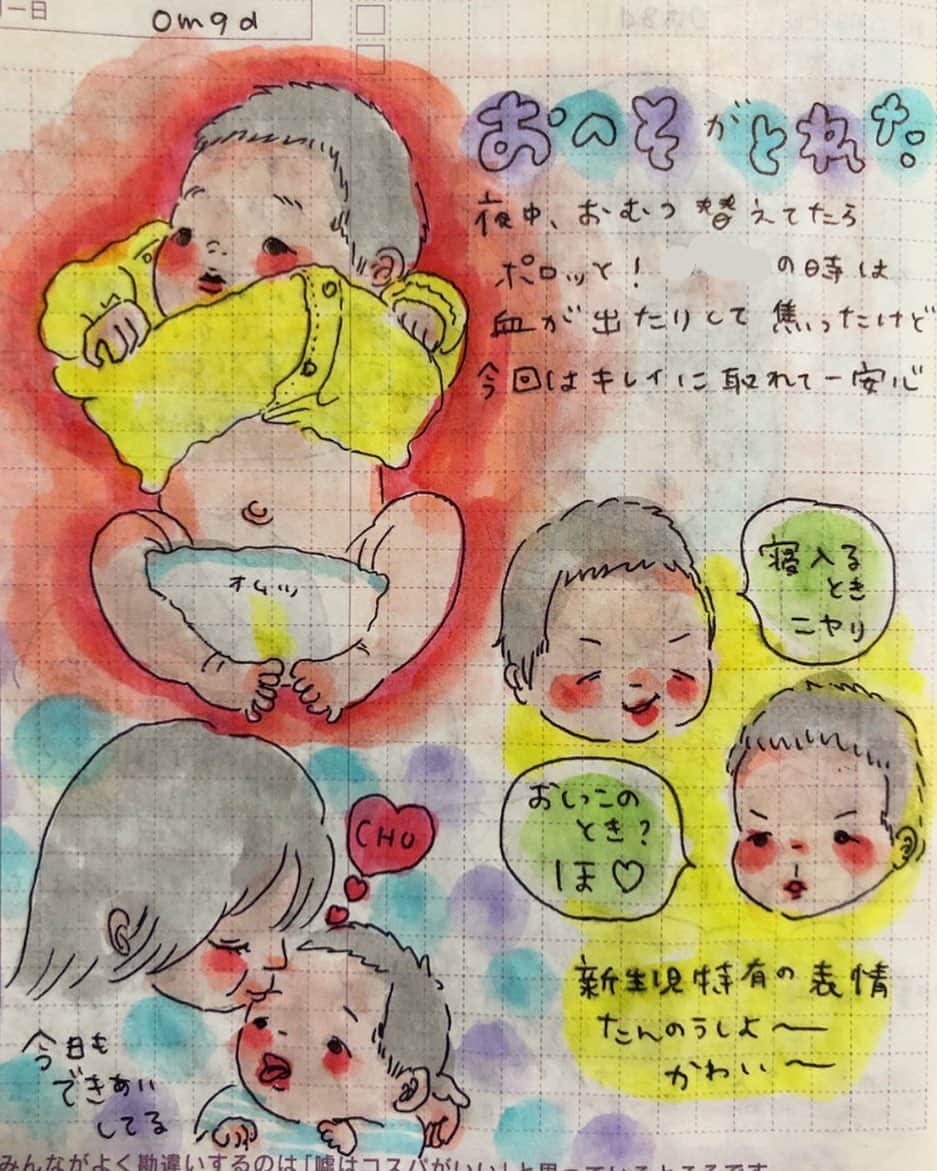 一日
0m9d
おへそがとれた
夜中、おむつ替えてたら
ポロッと！ の時は
血が出たりして焦ったけど
今回はキレイに取れて一安心
オムツ
寝入る
とき
ニヤリ
おしっこの
とき？
ほ♡
CHU
新生児特有の表情
たんのうしよ〜
かわい〜
今日も
できあい
してる
みんながよく勘違いするのは「嘘はコスパがいい」と思っているところです